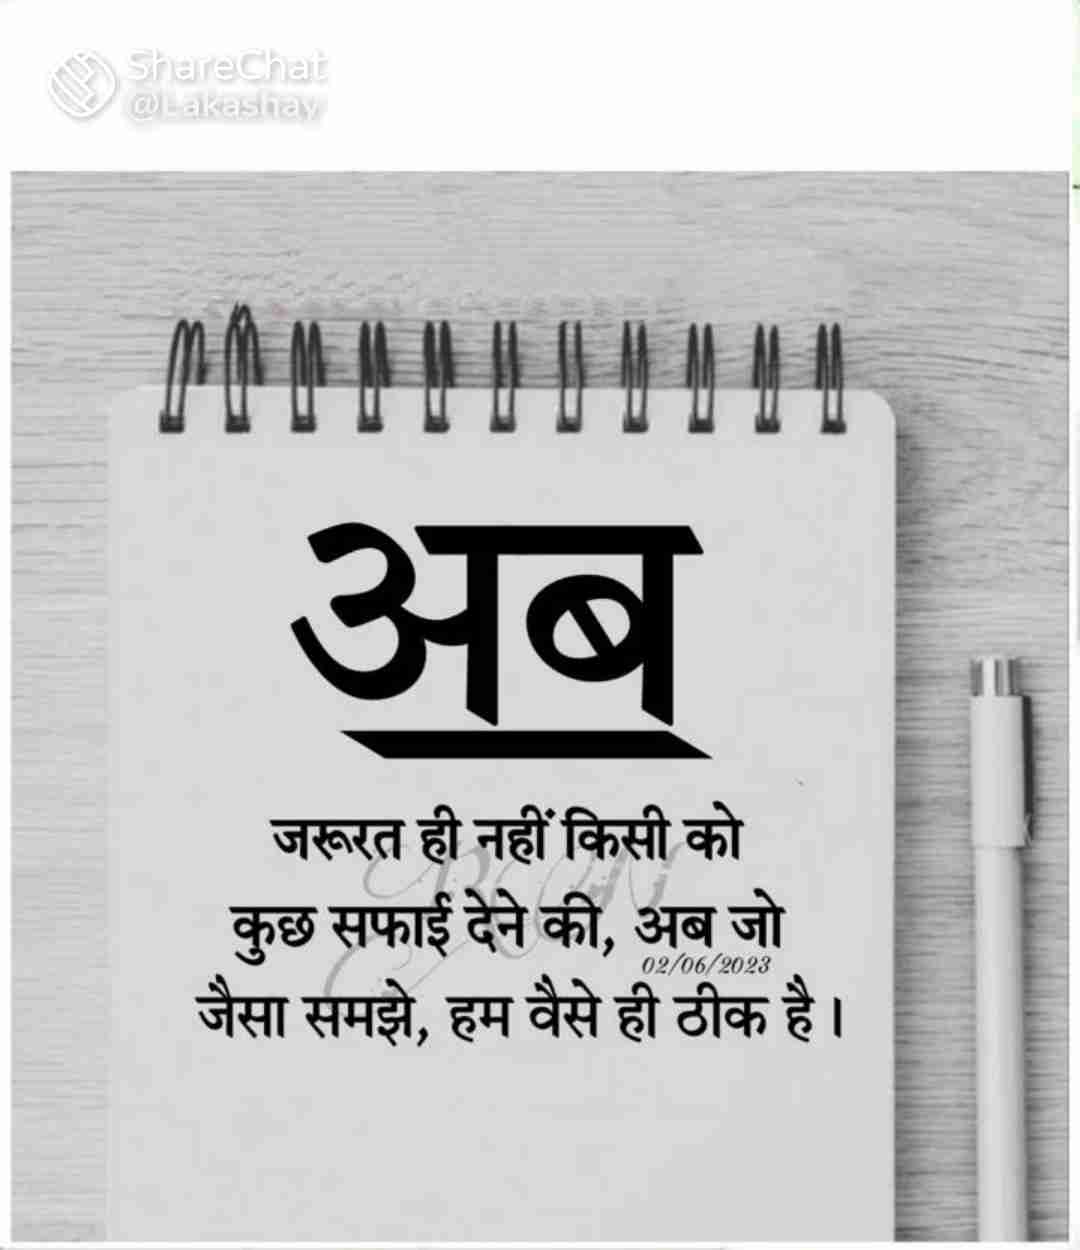 ShareChat
@Lakashay
अब
जरूरत ही नहीं किसी को
कुछ सफाई देने की, अब जो
02/06/2023
जैसा समझे, हम वैसे ही ठीक है।